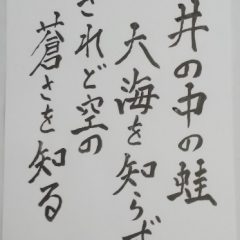 井の中の蛙
大海を知らず
されど空の
蒼さを知る